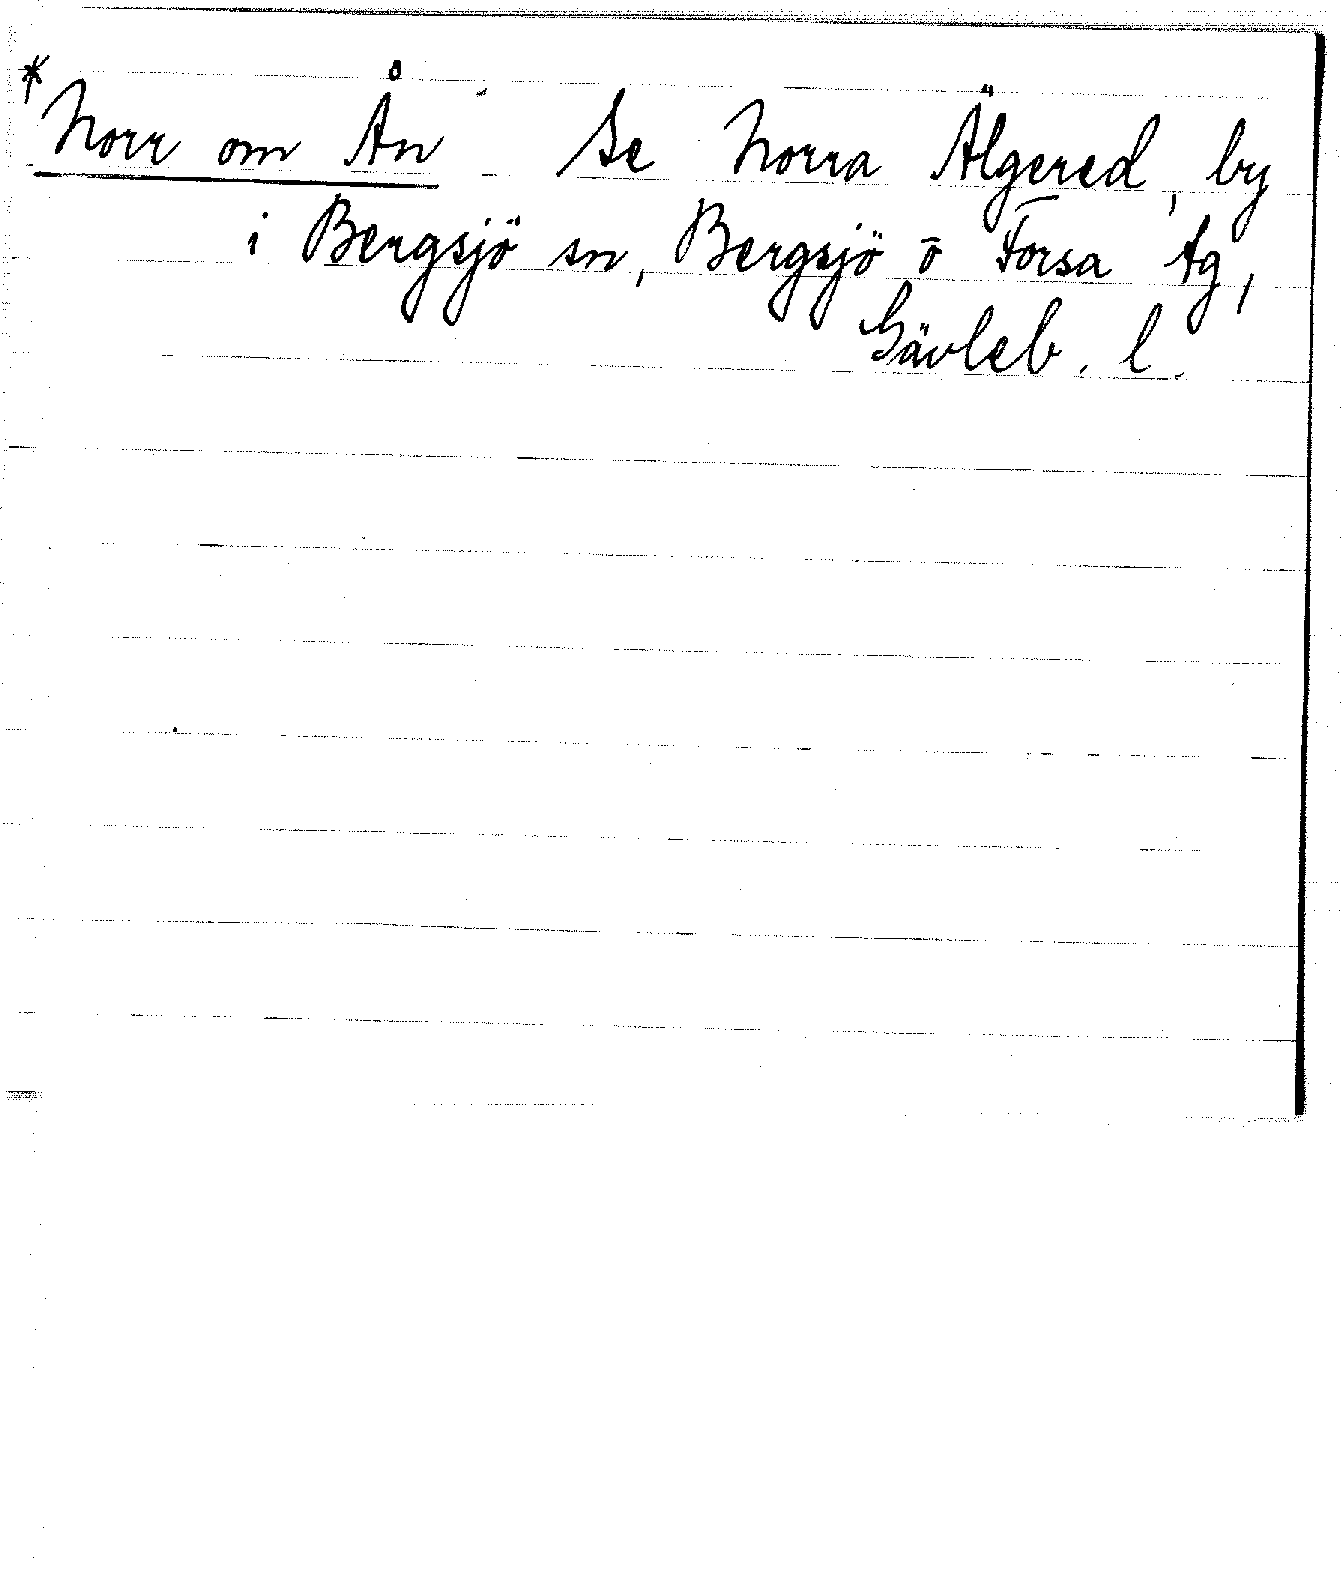 *Norr om Ån Se Norra Älgered, by
i Bergsjö sn, Bergsjö o Forsa tg,
Gävleb. l.